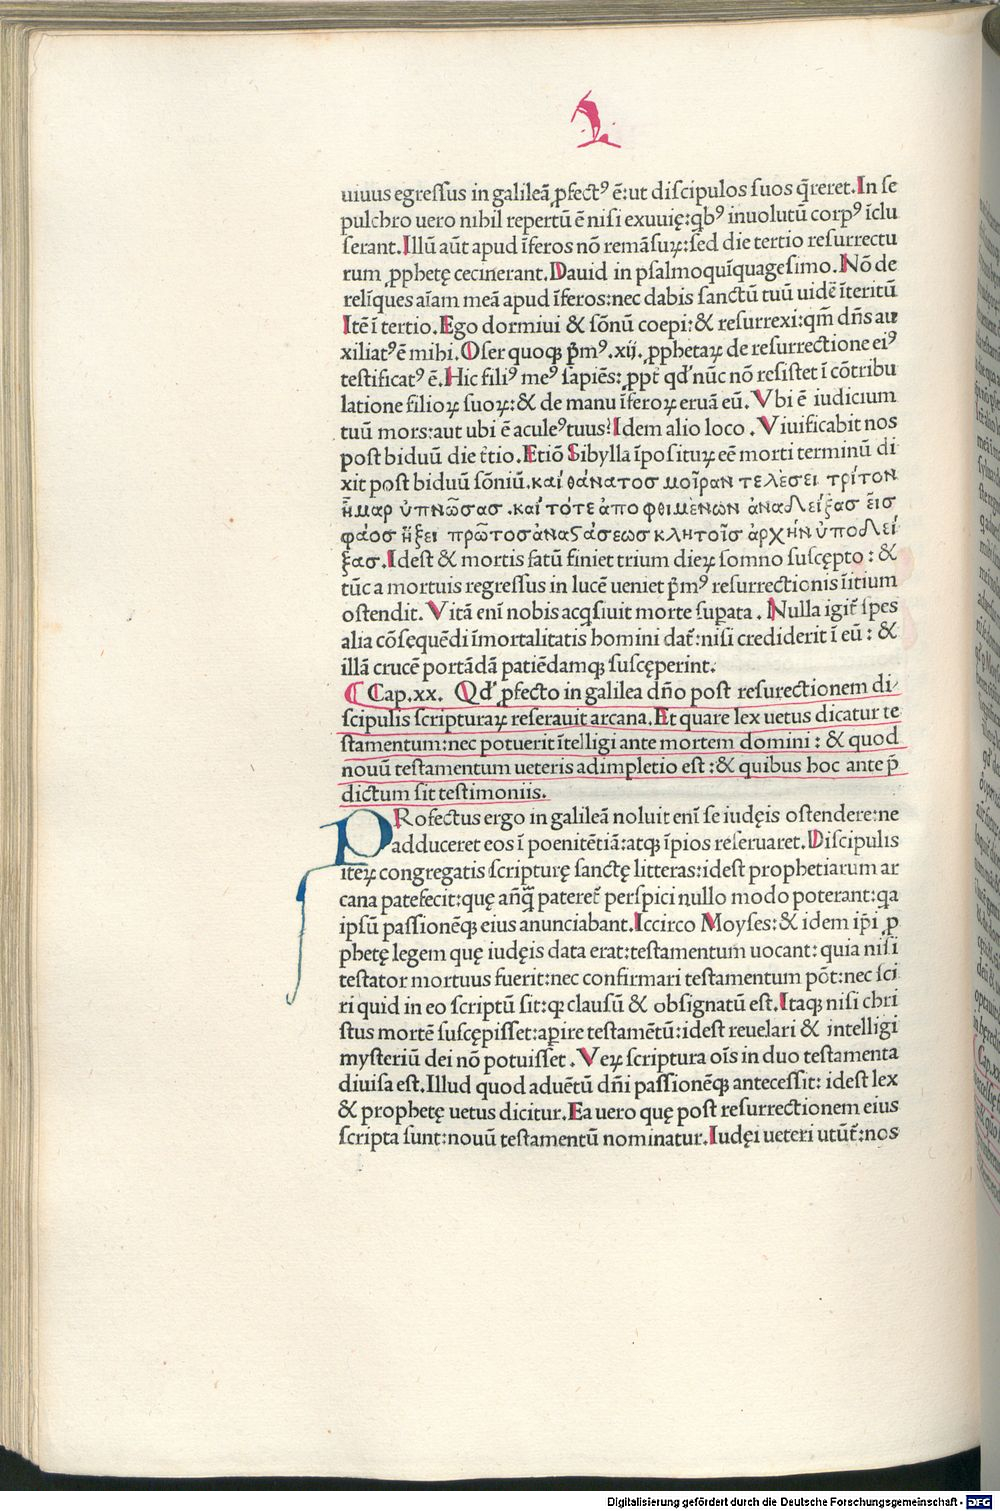 uiuus egressus in galileã ꝓfectꝰ ẽ:ut discipulos suos q̃reret.In se
pulchro uero nihil repertũ ẽ nisi exuuię:qbꝰ inuolutũ corpꝰ ĩclu
serant.Illũ aũt apud ĩferos nõ remãsuꝝ:sed die tertio resurrectu
rum ꝓphetę cecinerant.Dauid in psalmo quĩquagesimo.Nõ de
relĩques aĩam meã apud ĩferos:nec dabis sanctũ tuũ uidẽ ĩteritũ
Itẽ ĩ tertio.Ego dormiui & sõnũ coepi:& resurrexi:qm̃ dñs au
xiliatꝰ ẽ mihi.Oser quoqꝫ p̃mꝰ.xij.ꝓphetaꝝ de resurrectione eiꝰ
testificatꝰ ẽ.Hic filiꝰ meꝰ sapiẽs:ꝓpt̃ qđ nũc nõ resistet ĩ cõtribu
latione filioꝝ suoꝝ:& de manu ĩferoꝝ eruã eũ.Vbi ẽ iudicium
tuũ mors:aut ubi ẽ aculeꝰ tuus?Idem alio loco.Viuificabit nos
post biduũ die t̃tio.Etiõ Sibylla ĩposituꝝ eẽ morti terminũ di
xit post biduũ sõniũ.καί θάνατοσ μοῖραν τελέσει τρίτον
ἦμαρ ὑπνῶσασ.καί τότε ἀπο φθιμένων ἀναδείξασ εἰσ
φάοσ ἥξει πρῶτοσ ἀναϛάσεωσ κλητοῖσ ἀρχὴν ὑποδεί
ξασ.Idest & mortis fatũ finiet trium dieꝝ somno suscępto:&
tũc a mortuis regressus in lucẽ ueniet p̃mꝰ resurrectionis ĩitium
ostendit.Vitã enĩ nobis acq̃siuit morte suꝑata.Nulla igit̃ spes
alia cõsequẽdi ĩmortalitatis homini dat̃:nisi crediderit ĩ eũ:&
illã crucẽ portãdã patiẽdamqꝫ suscęperint.
¶ Cap.xx. Qđ ꝓfecto in galilea dño post resurectionem di
scipulis scripturaꝝ reserauit arcana.Et quare lex uetus dicatur te
stamentum:nec potuerit ĩtelligi ante mortem domini:& quod
nouũ testamentum ueteris adimpletio est:& quibus hoc ante p̃
dictum sit testimoniis.
PRofectus ergo in galileã noluit enĩ se iudęis ostendere:ne
adduceret eos ĩ poenitẽtiã:atqꝫ ĩpios reseruaret.Discipulis
iteꝝ congregatis scripturę sanctę litteras:idest prophetiarum ar
cana patefecit:quę añq̃ pateret̃ perspici nullo modo poterant:qa
ipsũ passionẽqꝫ eius anunciabant.Iccirco Moyses:& idem ip̃i ꝓ
phetę legem quę iudęis data erat:testamentum uocant:quia nisi
testator mortuus fuerit:nec confirmari testamentum põt:nec sci
ri quid in eo scriptũ sit:qꝫ clausũ & obsignatũ est.Itaqꝫ nisi chri
stus mortẽ suscępisset:aꝑire testamẽtũ:idest reuelari & intelligi
mysteriũ dei nõ potuisset.Veꝝ scriptura oĩs in duo testamenta
diuisa est.Illud quod aduẽtũ dñi passionẽqꝫ antecessit:idest lex
& prophetę uetus dicitur.Ea uero quę post resurrectionem eius
scripta sunt:nouũ testamentũ nominatur.Iudęi ueteri utũt̃:nos
Digitalisierung gefördert durch die Deutsche Forschungsgemeinschaft - DFG